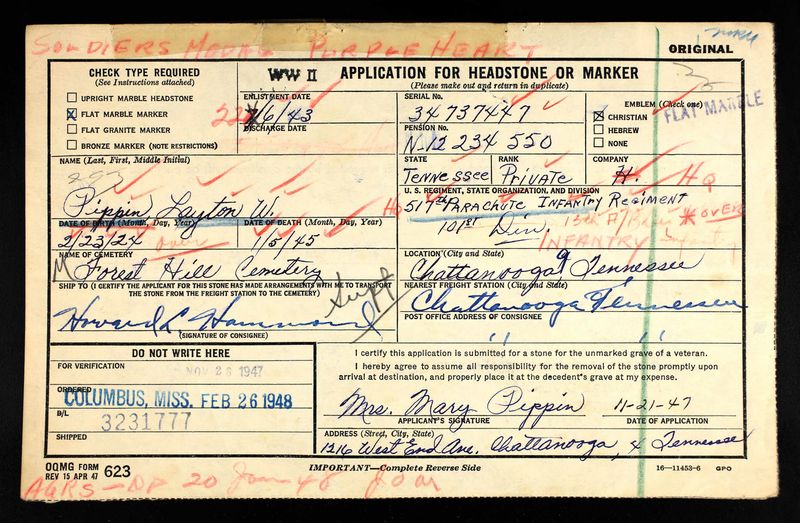 SOLDIERS MEDAL PURPLE HEART
ORIGINAL
CHECK TYPE REQUIRED
(See Instructions attached)
UPRIGHT MARBLE HEADSTONE
FLAT MARBLE MARKER
FLAT GRANITE MARKER
BRONZE MARKER (NOTE RESTRICTIONS)
WW II APPLICATION FOR HEADSTONE OR MARKER
(Please make out and return in duplicate)
ENLISTMENT DATE
7/6/43
DISCHARGE DATE
SERIAL NO.
34737447
PENSION NO.
N-12 234 550
EMBLEM (Check one)
CHRISTIAN
HEBREW
NONE
FLAT MARBLE
NAME (Last, First, Middle Initial)
293
Pippin Layton W.
STATE
Tennessee
RANK
Private
COMPANY
H.
HQ
U. S. REGIMENT, STATE ORGANIZATION, AND DIVISION
517th Parachute Infantry Regiment
101st Div.
OVER
INFANTRY
DATE OF BIRTH (Month, Day, Year)
2/23/24
over
DATE OF DEATH (Month, Day, Year)
1/5/45
NAME OF CEMETERY
Forest Hill Cemetery
LOCATION (City and State)
Chattanooga Tennessee
SHIP TO (I CERTIFY THE APPLICANT FOR THIS STONE HAS MADE ARRANGEMENTS WITH ME TO TRANSPORT
THE STONE FROM THE FREIGHT STATION TO THE CEMETERY)
Howard L Hammond
(SIGNATURE OF CONSIGNEE)
NEAREST FREIGHT STATION (City and State)
Chattanooga Tennessee
POST OFFICE ADDRESS OF CONSIGNEE
" "
DO NOT WRITE HERE
FOR VERIFICATION
NOV 26 1947
ORDERED
COLUMBUS, MISS. FEB 26 1948
B/L
3231777
SHIPPED
I certify this application is submitted for a stone for the unmarked grave of a veteran.
I hereby agree to assume all responsibility for the removal of the stone promptly upon
arrival at destination, and properly place it at the decedent's grave at my expense.
Mrs. Mary Pippin 11-21-47
APPLICANT'S SIGNATURE DATE OF APPLICATION
ADDRESS (Street, City, State)
1216 West End Ave. Chattanooga, 4 Tennessee
OQMG FORM
REV 15 APR 47 623
IMPORTANT—Complete Reverse Side
16—11453-6 GPO
AGRS—DP 20 Jan 48